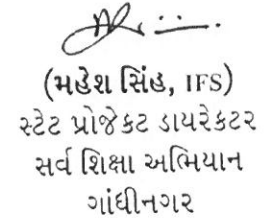 (મહેશ સિંહ, IFS)
સ્ટેટ પ્રોજેકટ ડાયરેકટર
સર્વ શિક્ષા અભિયાન
ગાંધીનગર